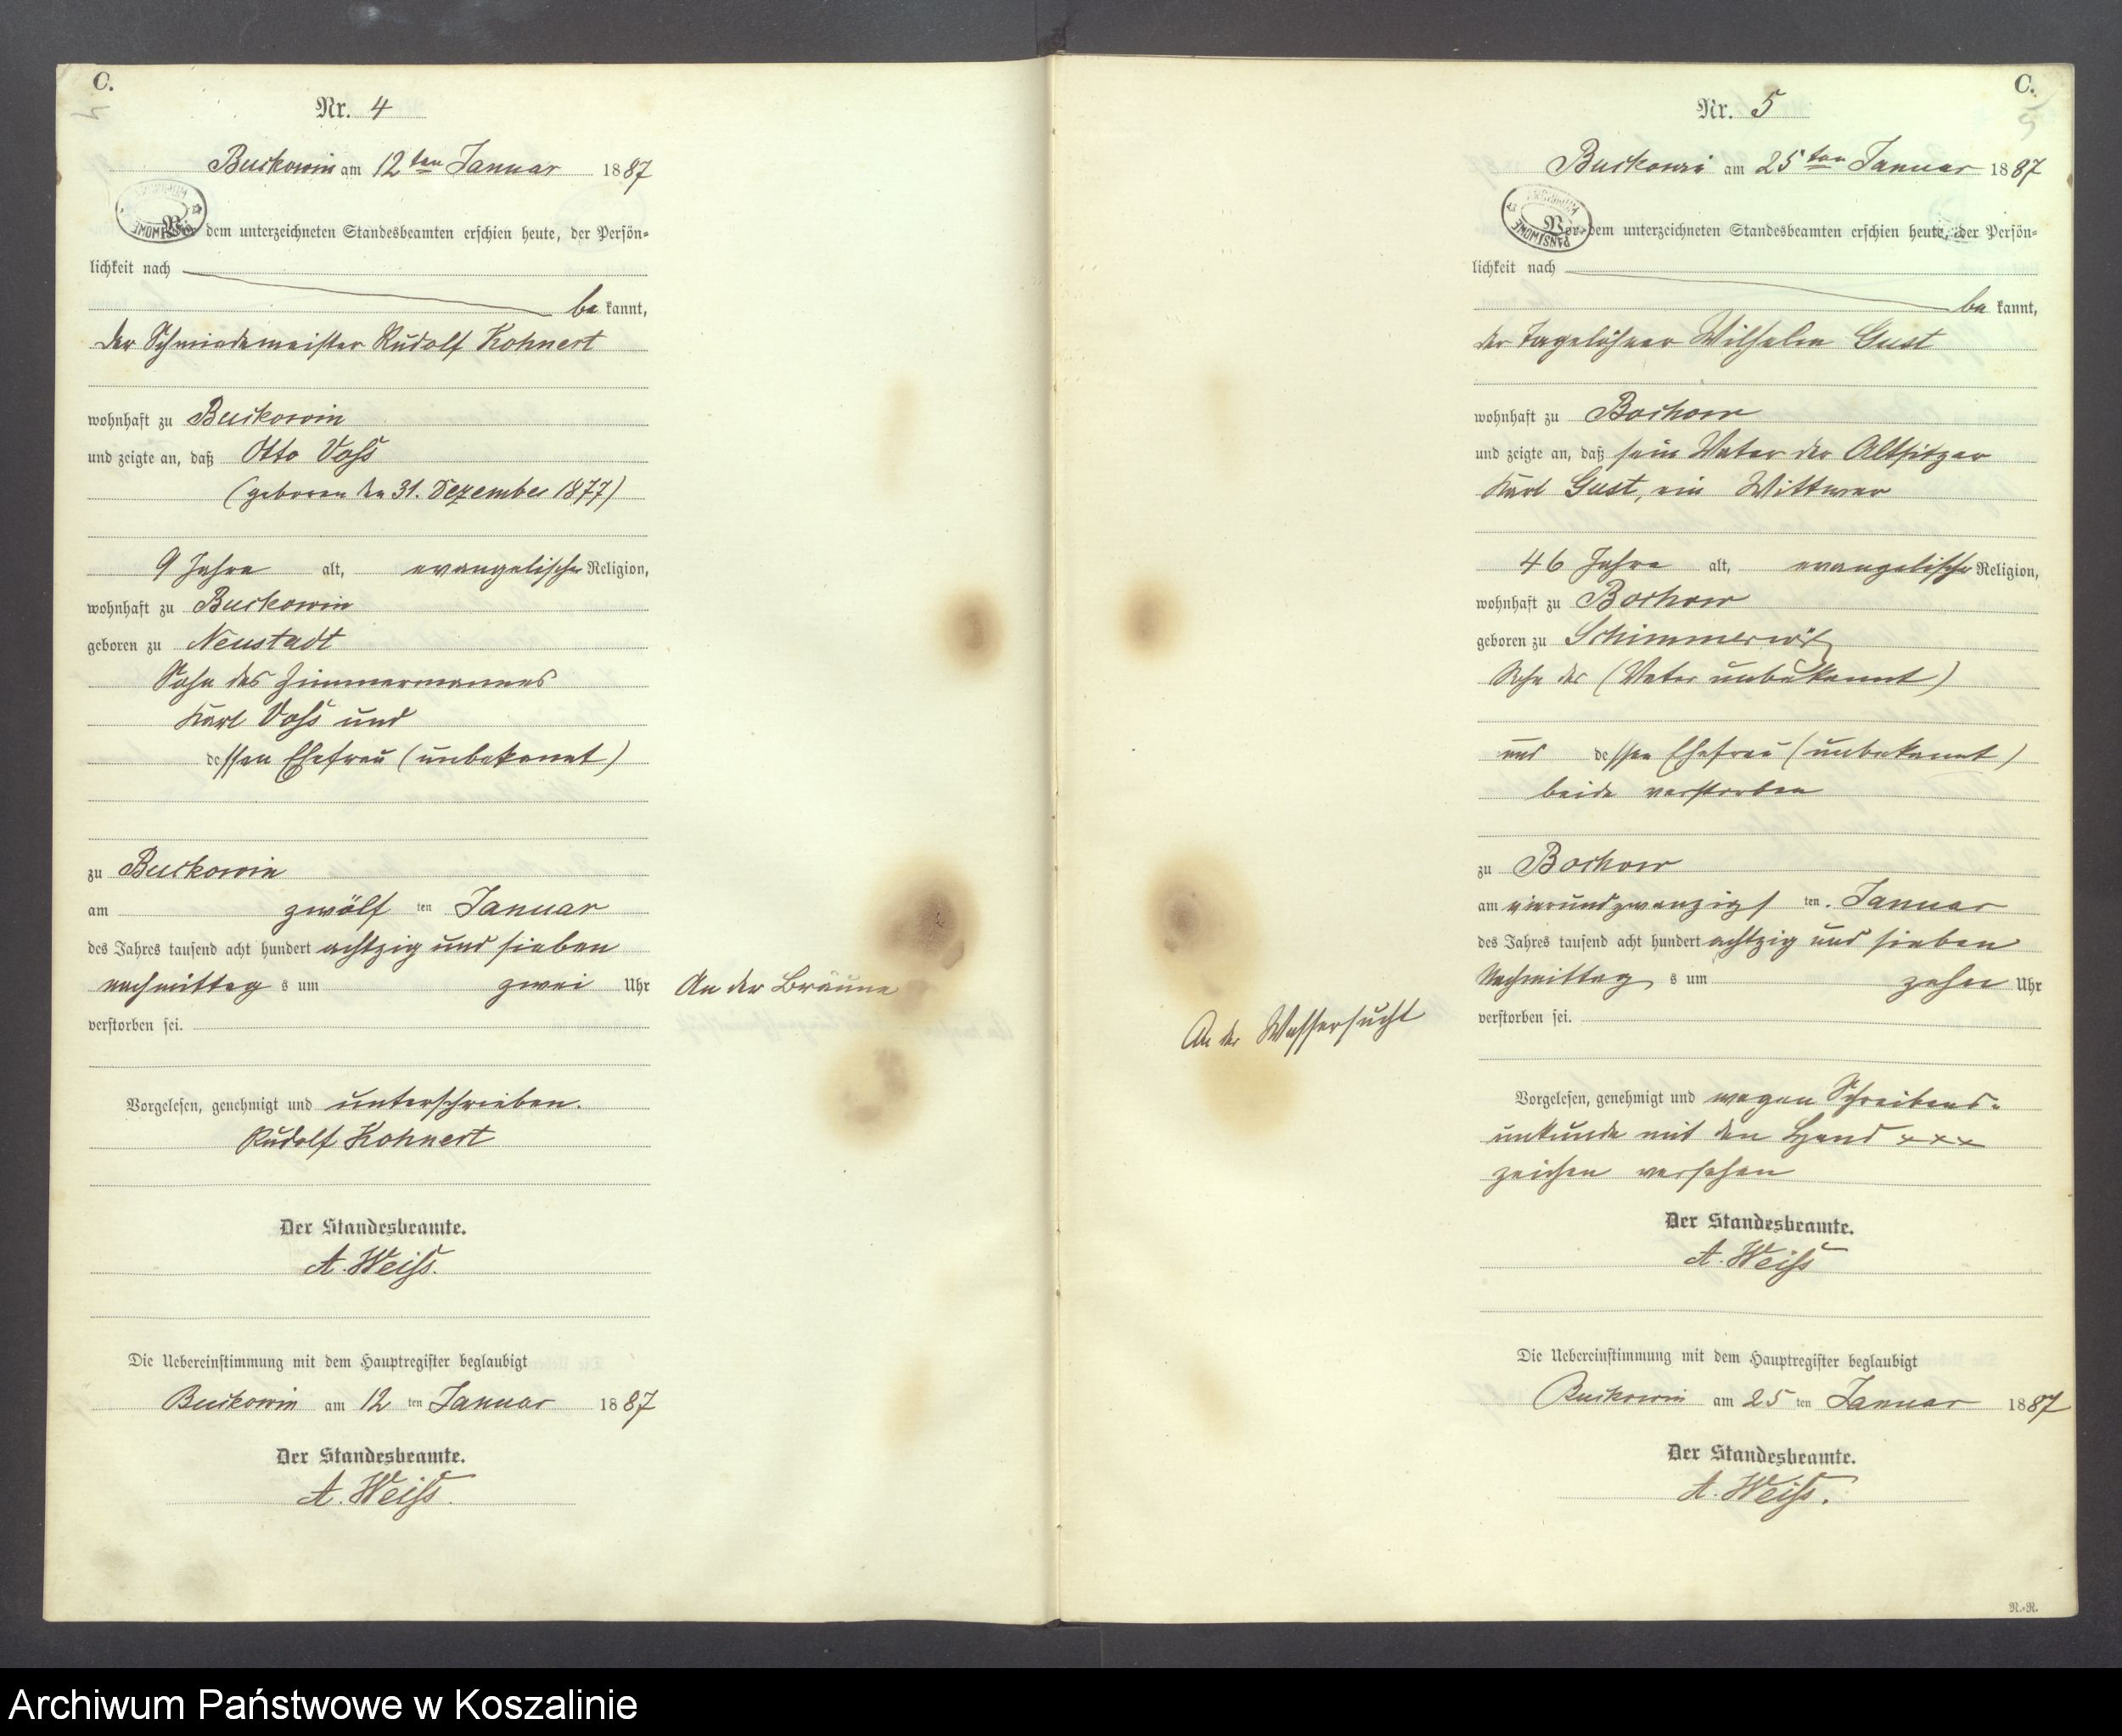 C.
Nr. 4
Buckowin am 12ten Januar 1887
dem unterzeichneten Standesbeamten erschien heute, der Persön-
lichkeit nach
be kannt,
der Schmiedemeister Rudolf Kohnert
wohnhaft zu Buckowin
und zeigte an, daß Otto Voss
(geboren den 31. Dezember 1877)
9 Jahre alt, evangelischer Religion,
wohnhaft zu Buckowin
geboren zu Neustadt
Sohn des Zimmermannes
Karl Voss und
dessen Ehefrau (unbekannt)
zu Buckowin
am zwölf ten Januar
des Jahres tausend acht hundert achtzig und sieben
nachmittag s um zwei Uhr
verstorben sei.
An der Bräune
Vorgelesen, genehmigt und unterschrieben.
Rudolf Kohnert
Der Standesbeamte.
A. Weiss.
Die Uebereinstimmung mit dem Hauptregister beglaubigt
Buckowin am 12 ten Januar 1887
Der Standesbeamte.
A. Weiss.
C.
5
Nr. 5
Buckowin am 25ten Januar 1887
Vor dem unterzeichneten Standesbeamten erschien heute, der Persön-
lichkeit nach
be kannt,
der Tagelöhner Wilhelm Gust
wohnhaft zu Bochow
und zeigte an, daß sein Vater der Altsitzer
Karl Gust, ein Wittwer
46 Jahre alt, evangelischer Religion,
wohnhaft zu Bochow
geboren zu Schimmerwitz
Sohn des (Vater unbekannt)
und dessen Ehefrau (unbekannt)
beide verstorben
zu Bochow
am vierundzwanzigs ten Januar
des Jahres tausend acht hundert achtzig und sieben
Nachmittag s um zehn Uhr
verstorben sei.
An der Wassersucht
Vorgelesen, genehmigt und wegen Schreibens-
unkunde mit den Hand xxx
zeichen versehen
Der Standesbeamte.
A. Weiss
Die Uebereinstimmung mit dem Hauptregister beglaubigt
Buckowin am 25 ten Januar 1887
Der Standesbeamte.
A. Weiss.
N.-N.
Archiwum Państwowe w Koszalinie